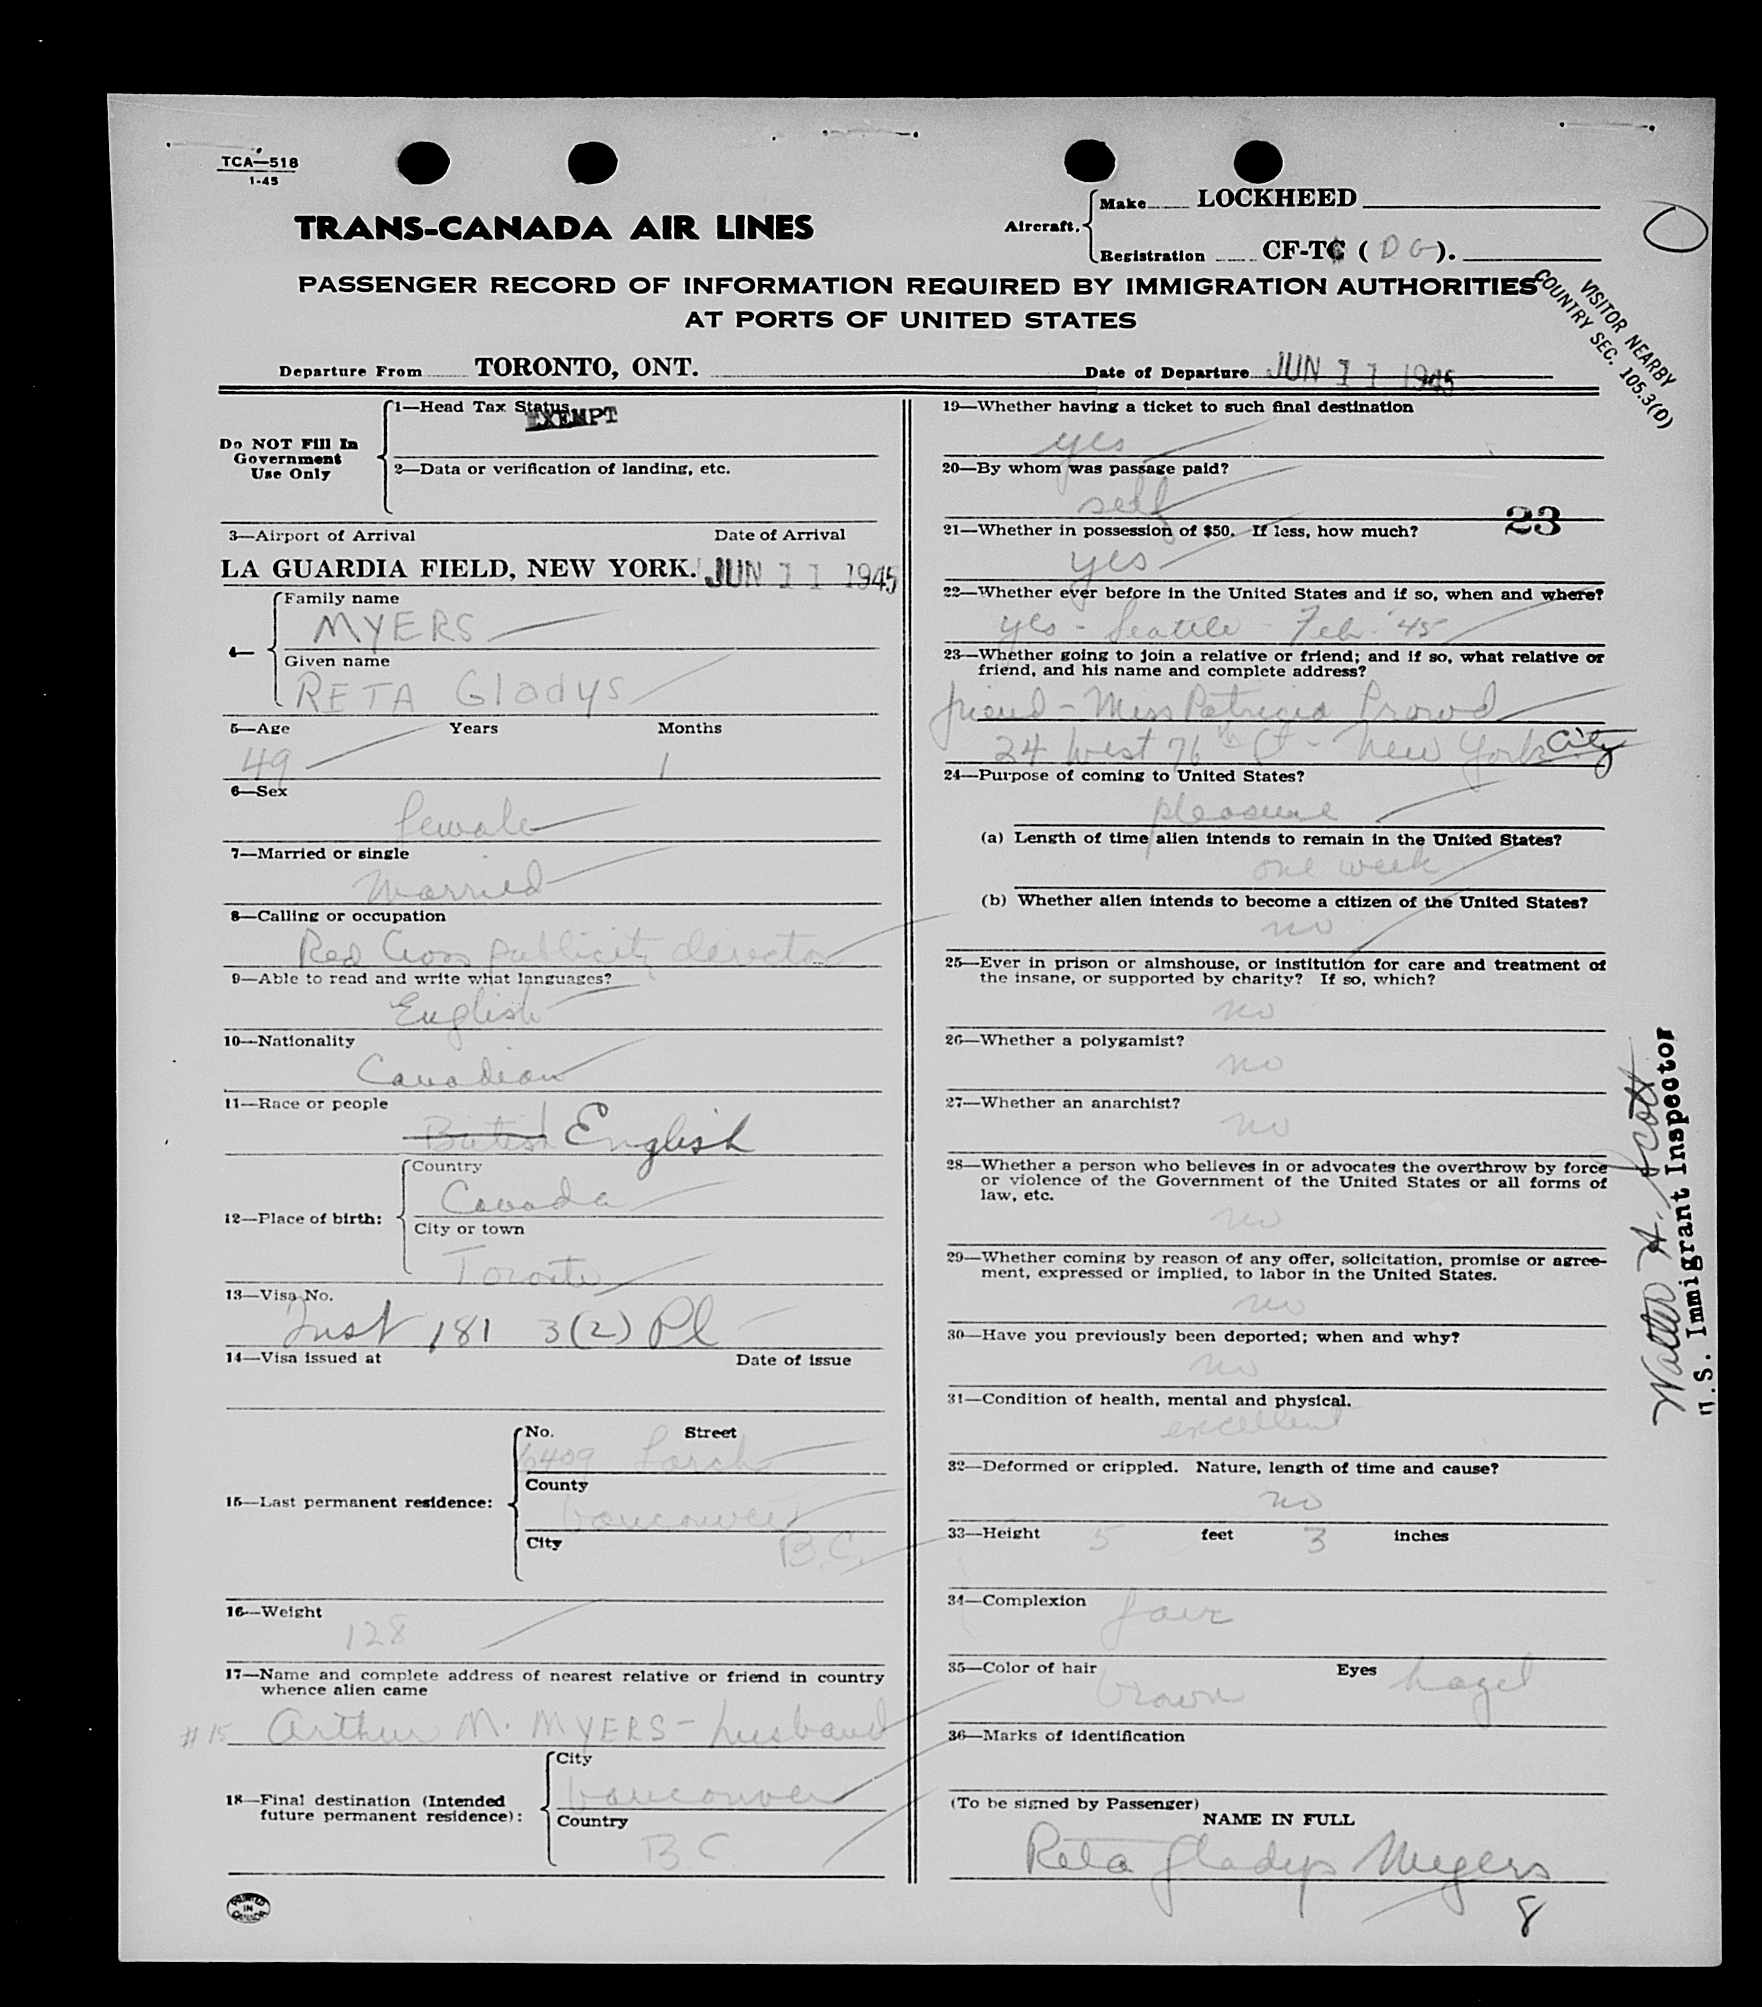 TCA—518
1-45
TRANS-CANADA AIR LINES
Aircraft.
Make LOCKHEED
Registration CF-TC ( DG ).
PASSENGER RECORD OF INFORMATION REQUIRED BY IMMIGRATION AUTHORITIES
AT PORTS OF UNITED STATES
VISITOR NEARBY
COUNTRY SEC. 105.3(D)
Departure From TORONTO, ONT.
Date of Departure JUN 11 1945
Do NOT Fill In
Government
Use Only
1—Head Tax Status
EXEMPT
2—Data or verification of landing, etc.
3—Airport of Arrival Date of Arrival
LA GUARDIA FIELD, NEW YORK. JUN 11 1945
4—
Family name
MYERS
Given name
RETA Gladys
5—Age Years Months
49 1
6—Sex
female
7—Married or single
Married
8—Calling or occupation
Red Cross publicity director
9—Able to read and write what languages?
English
10—Nationality
Canadian
11—Race or people
British English
12—Place of birth:
Country
Canada
City or town
Toronto
13—Visa No.
Inst 181 3(2) Pl
14—Visa issued at Date of issue
15—Last permanent residence:
No. Street
6409 Larch
County
Vancouver
City
B.C.
16—Weight
128
17—Name and complete address of nearest relative or friend in country
whence alien came
#15 Arthur M. MYERS - husband
18—Final destination (Intended
future permanent residence):
City
Vancouver
Country
B C
PRINTED
IN
CANADA
19—Whether having a ticket to such final destination
yes
20—By whom was passage paid?
self
23
21—Whether in possession of $50. If less, how much?
yes
22—Whether ever before in the United States and if so, when and where?
yes - Seattle - Feb. '45
23—Whether going to join a relative or friend; and if so, what relative or
friend, and his name and complete address?
friend - Miss Patricia Prowd
24 West 76th St - New York City
24—Purpose of coming to United States?
pleasure
(a) Length of time alien intends to remain in the United States?
one week
(b) Whether alien intends to become a citizen of the United States?
no
25—Ever in prison or almshouse, or institution for care and treatment of
the insane, or supported by charity? If so, which?
no
26—Whether a polygamist?
no
27—Whether an anarchist?
no
28—Whether a person who believes in or advocates the overthrow by force
or violence of the Government of the United States or all forms of
law, etc.
no
29—Whether coming by reason of any offer, solicitation, promise or agree-
ment, expressed or implied, to labor in the United States.
no
30—Have you previously been deported; when and why?
no
31—Condition of health, mental and physical.
excellent
32—Deformed or crippled. Nature, length of time and cause?
no
33—Height 5 feet 3 inches
34—Complexion fair
35—Color of hair brown Eyes hazel
36—Marks of identification
(To be signed by Passenger)
NAME IN FULL
Reta Gladys Myers
8
Walter A. Scott
U.S. Immigrant Inspector